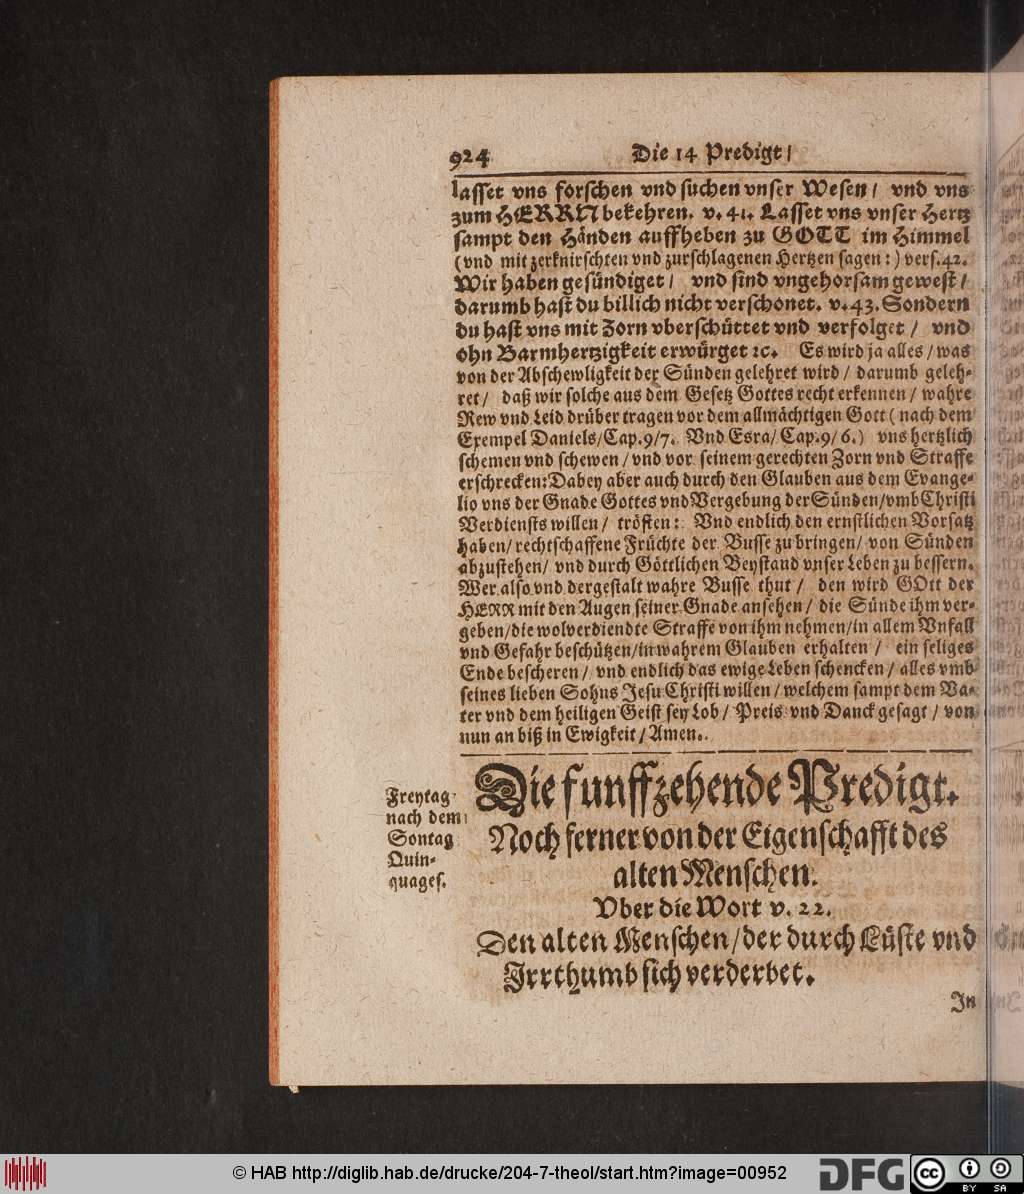 924 Die 14 Predigt/
lasset vns forschen vnd suchen vnser Wesen/ vnd vns
zum HERRN bekehren. v. 41. Lasset vns vnser Hertz
sampt den Händen auffheben zu GOTT im Himmel
(vnd mit zerknirschten vnd zurschlagenen Hertzen sagen:) vers. 42.
Wir haben gesündiget/ vnd sind vngehorsam gewest/
darumb hast du billich nicht verschonet. v. 43. Sondern
du hast vns mit Zorn vberschüttet vnd verfolget/ vnd
ohn Barmhertzigkeit erwürget ꝛc. Es wird ja alles/ was
von der Abschewligkeit der Sünden gelehret wird/ darumb geleh-
ret/ daß wir solche aus dem Gesetz Gottes recht erkennen/ wahre
Rew vnd Leid drüber tragen vor dem allmächtigen Gott (nach dem
Exempel Daniels/Cap.9/7. Vnd Esra/ Cap.9/6.) vns hertzlich
schemen vnd schewen/ vnd vor seinem gerechten Zorn vnd Straffe
erschrecken: Dabey aber auch durch den Glauben aus dem Evange-
lio vns der Gnade Gottes vnd Vergebung der Sünden/vmb Christi
Verdiensts willen/ trösten: Vnd endlich den ernstlichen Vorsatz
haben/ rechtschaffene Früchte der Busse zu bringen/ von Sünden
abzustehen/ vnd durch Göttlichen Beystand vnser Leben zu bessern.
Wer also vnd dergestalt wahre Busse thut/ den wird GOtt der
HERR mit den Augen seiner Gnade ansehen/ die Sünde ihm ver-
geben/die wolverdiendte Straffe von ihm nehmen/in allem Vnfall
vnd Gefahr beschützen/in wahrem Glauben erhalten/ ein seliges
Ende bescheren/ vnd endlich das ewige Leben schencken/ alles vmb
seines lieben Sohns Jesu Christi willen/ welchem sampt dem Va-
ter vnd dem heiligen Geist sey Lob/ Preis vnd Danck gesagt/ von
nun an biß in Ewigkeit/ Amen.
Freytag
nach dem
Sontag
Quin-
quages.
Die funffzehende Predigt.
Noch ferner von der Eigenschafft des
alten Menschen.
Vber die Wort v. 22.
Den alten Menschen/der durch Lüste vnd
Irrthumb sich verderbet.
In
© HAB http://diglib.hab.de/drucke/204-7-theol/start.htm?image=00952
DFG
cc
BY SA